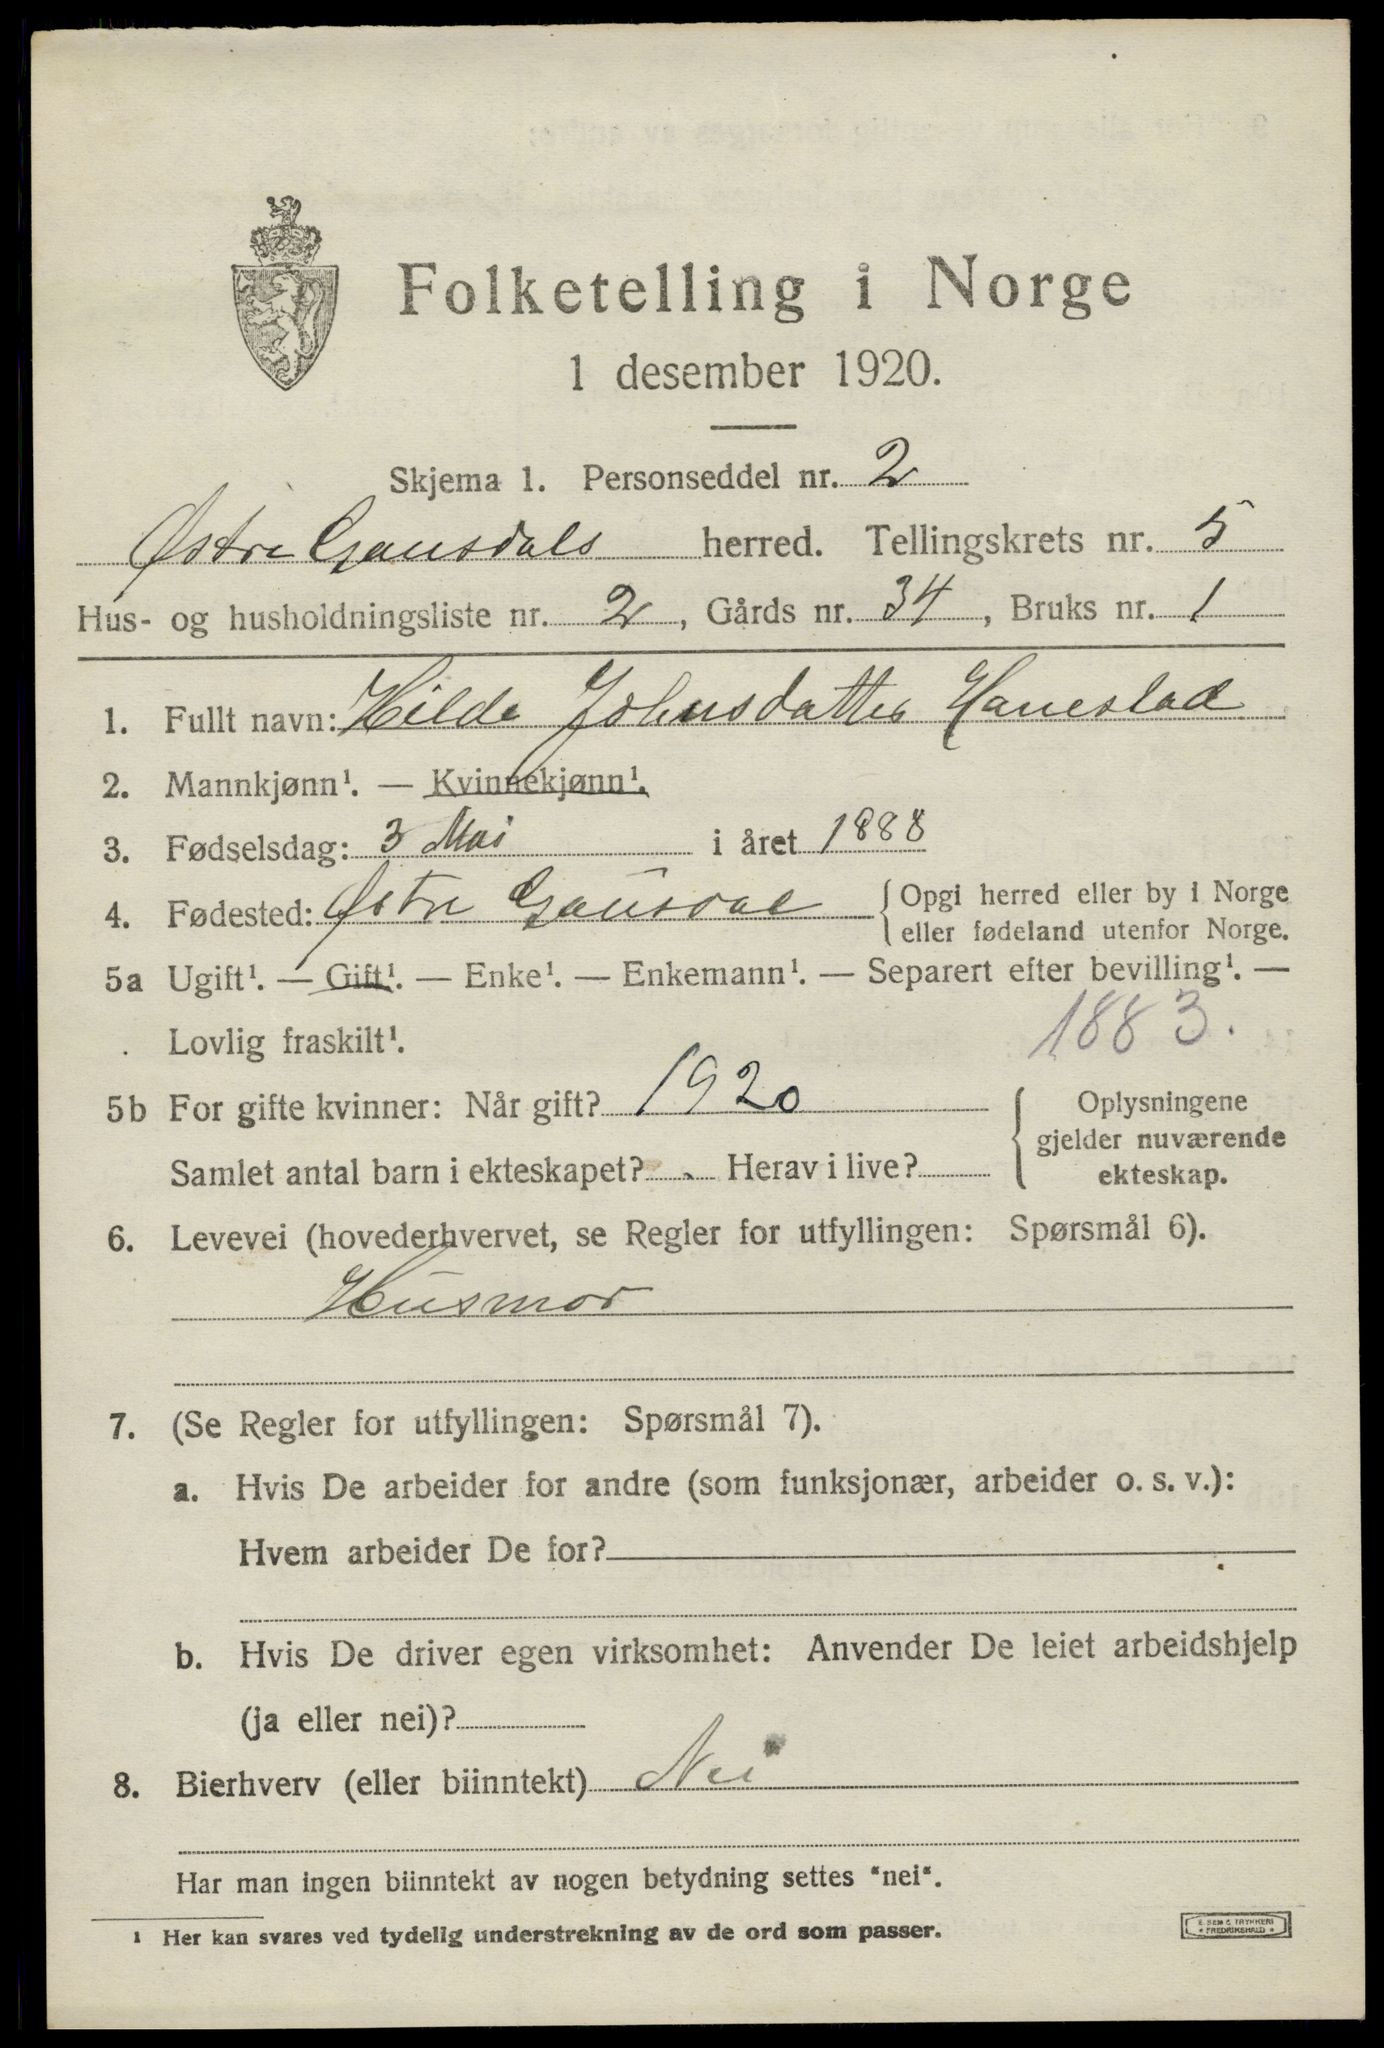 Folketelling i Norge
1 desember 1920.
Skjema 1. Personseddel nr. 2
Østre Gausdals herred. Tellingskrets nr. 5
Hus- og husholdningsliste nr. 2, Gårds nr. 34, Bruks nr. 1
1. Fullt navn: Hilda Johnsdatter Hanestad
2. Mannkjønn¹. — Kvinnekjønn¹.
3. Fødselsdag: 3 Mai i året 1888
4. Fødested: Østre Gausdal { Opgi herred eller by i Norge
eller fødeland utenfor Norge.
5a Ugift¹. — Gift¹. — Enke¹. — Enkemann¹. — Separert efter bevilling¹. —
Lovlig fraskilt¹. 1883.
5b For gifte kvinner: Når gift? 1920
Samlet antal barn i ekteskapet? . Herav i live?
{ Oplysningene
gjelder nuværende
ekteskap.
6. Levevei (hovederhvervet, se Regler for utfyllingen: Spørsmål 6).
Husmor
7. (Se Regler for utfyllingen: Spørsmål 7).
a. Hvis De arbeider for andre (som funksjonær, arbeider o. s. v.):
Hvem arbeider De for?
b. Hvis De driver egen virksomhet: Anvender De leiet arbeidshjelp
(ja eller nei)?
8. Bierhverv (eller biinntekt) Nei
Har man ingen biinntekt av nogen betydning settes "nei".
¹ Her kan svares ved tydelig understrekning av de ord som passer.
E. SEM'S TRYKKERI
* FREDRIKSHALD *